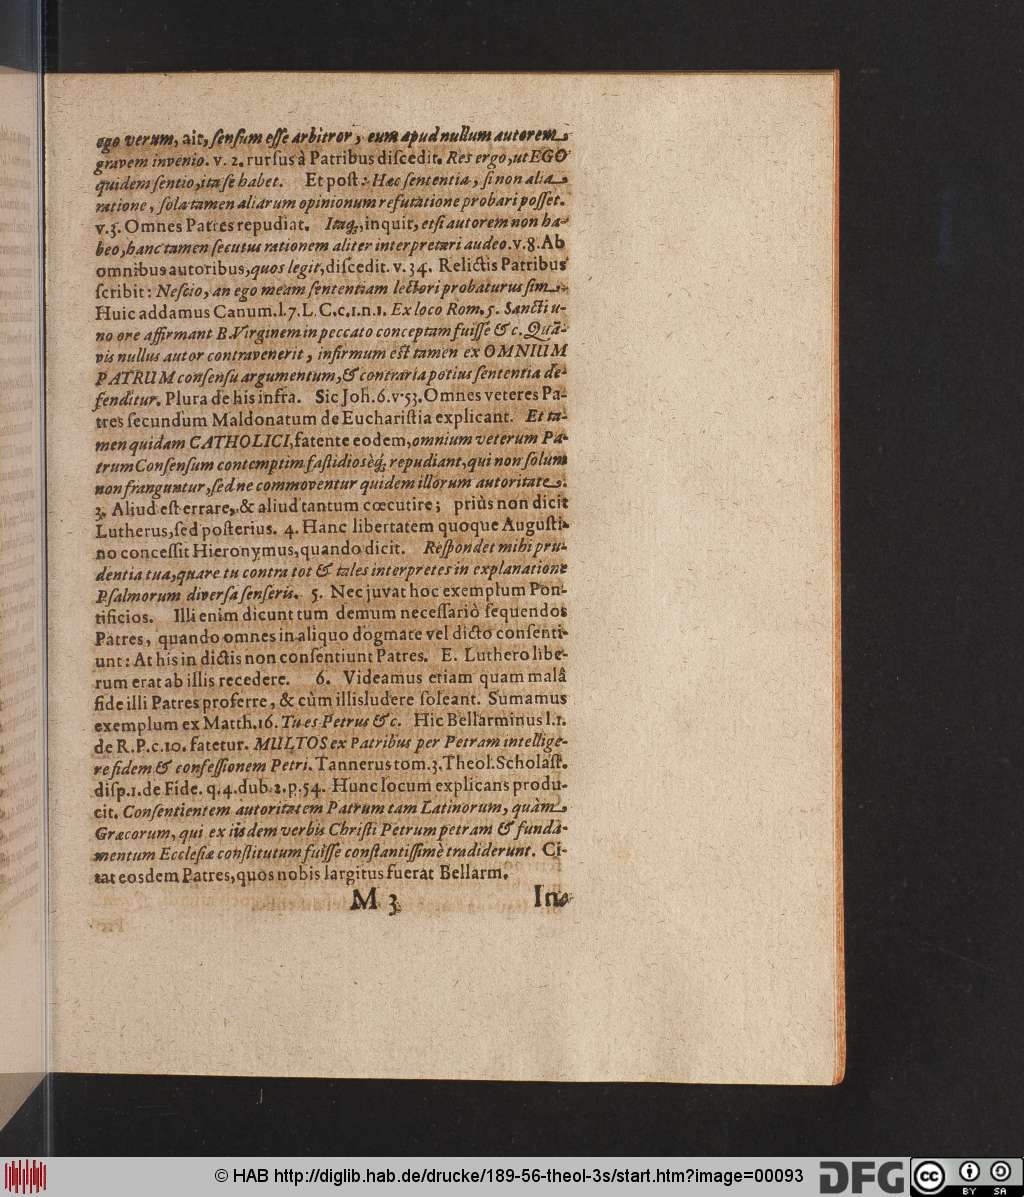 ego verum, ait, ſenſum eſſe arbitror, eum apud nullum autorem
gravem invenio. v. 2. rurſus à Patribus diſcedit. Res ergo, ut EGO
quidem ſentio, ita ſe habet. Et poſt: Hæc ſententia, ſi non alia
ratione, ſola tamen aliarum opinionum refutatione probari poſſet.
v. 3. Omnes Patres repudiat. Itaq;, inquit, etſi autorem non ha-
beo, hanc tamen ſecutus rationem aliter interpretari audeo. v. 8. Ab
omnibus autoribus, quos legit, diſcedit. v. 34. Relictis Patribus
ſcribit: Neſcio, an ego meam ſententiam lectori probaturus ſim.
Huic addamus Canum. l. 7. L. C. c. 1. n. 1. Ex loco Rom. 5. Sancti u-
no ore affirmant B. Virginem in peccato conceptam fuiſſe &c. Quā-
vis nullus autor contravenerit, infirmum eſt tamen ex OMNIUM
PATRUM conſenſu argumentum, & contraria potius ſententia de-
fenditur. Plura de his infra. Sic Joh. 6. v. 53. Omnes veteres Pa-
tres ſecundum Maldonatum de Euchariſtia explicant. Et ta-
men quidam CATHOLICI, fatente eodem, omnium veterum Pa-
trum Conſenſum contemptim faſtidioſèq; repudiant, qui non ſolum
non franguntur, ſed ne commoventur quidem illorum autoritate.
3. Aliud eſt errare, & aliud tantum cœcutire; priùs non dicit
Lutherus, ſed poſterius. 4. Hanc libertatem quoque Auguſti-
no conceſſit Hieronymus, quando dicit. Reſpondet mihi pru-
dentia tua, quare tu contra tot & tales interpretes in explanatione
Pſalmorum diverſa ſenſeris. 5. Nec juvat hoc exemplum Pon-
tificios. Illi enim dicunt tum demum neceſſariò ſequendos
Patres, quando omnes in aliquo dogmate vel dicto conſenti-
unt: At his in dictis non conſentiunt Patres. E. Luthero libe-
rum erat ab illis recedere. 6. Videamus etiam quam malâ
fide illi Patres proferre, & cùm illis ludere ſoleant. Sumamus
exemplum ex Matth. 16. Tu es Petrus &c. Hic Bellarminus l. 1.
de R. P. c. 10. fatetur. MULTOS ex Patribus per Petram intellige-
re fidem & confeſſionem Petri. Tannerus tom. 3. Theol. Scholaſt.
diſp. 1. de Fide. q. 4. dub. 2. p. 54. Hunc locum explicans produ-
cit. Conſentientem autoritatem Patrum tam Latinorum, quàm
Græcorum, qui ex iisdem verbis Chriſti Petrum petram & funda-
mentum Eccleſiæ conſtitutum fuiſſe conſtantiſſimè tradiderunt. Ci-
tat eosdem Patres, quos nobis largitus fuerat Bellarm.
M 3 In
© HAB http://diglib.hab.de/drucke/189-56-theol-3s/start.htm?image=00093
DFG
cc BY SA